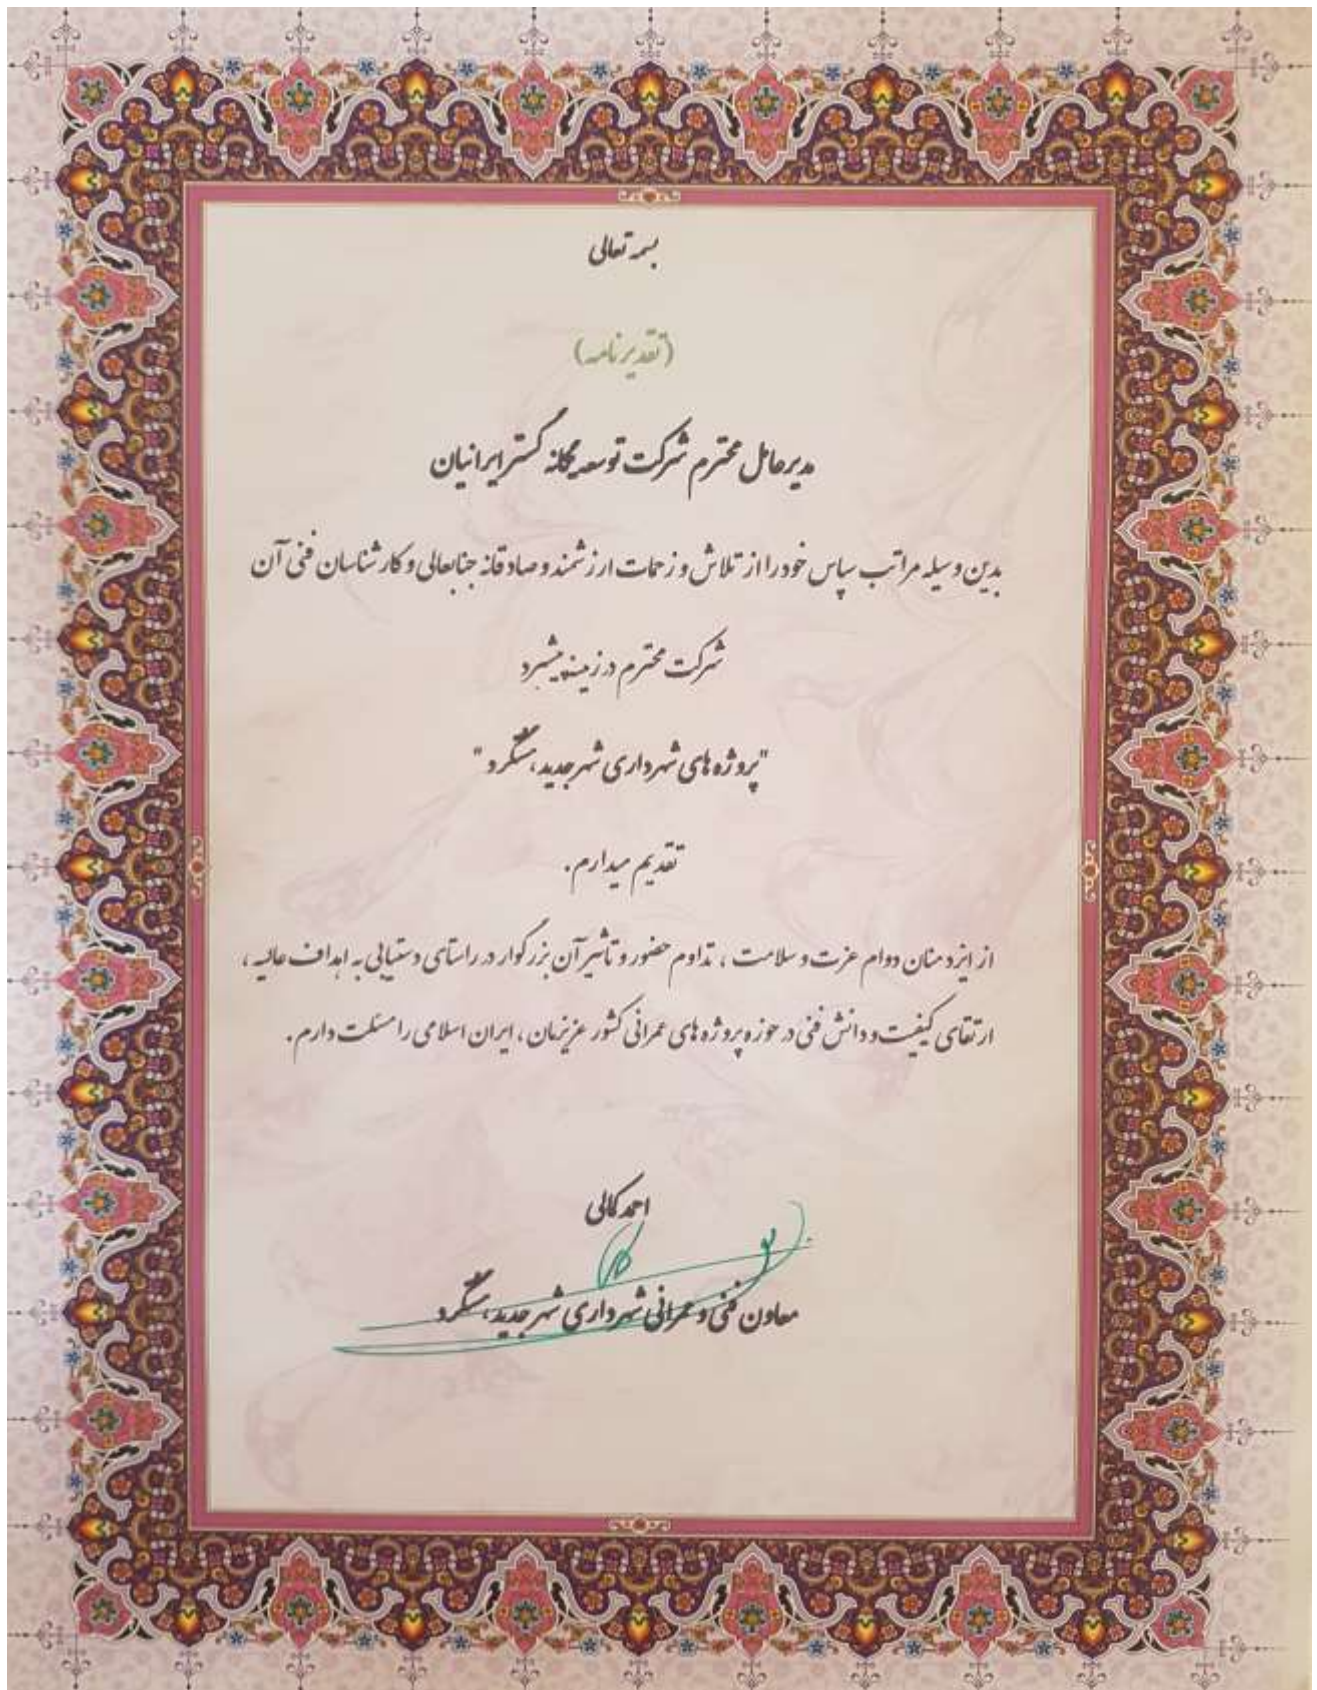 بسمه تعالی
(تقدیرنامه)
مدیرعامل محترم شرکت توسعه محکانه گستر ایرانیان
بدین وسیله مراتب سپاس خود را از تلاش و زحمات ارزشمند و صادقانه جنابعالی و کارشناسان فنی آن
شرکت محترم در زمینه پیشبرد
"پروژه های شهرداری شهر جدید هشتگرد"
تقدیم میدارم.
از ایزد منان دوام عزت و سلامت ، تداوم حضور و تاثیر آن بزرگوار در راستای دستیابی به اهداف عالیه ،
ارتقای کیفیت و دانش فنی در حوزه پروژه های عمرانی کشور عزیزمان ، ایران اسلامی را مسئلت دارم.
احمد کمالی
معاون فنی و عمرانی شهرداری شهر جدید هشتگرد